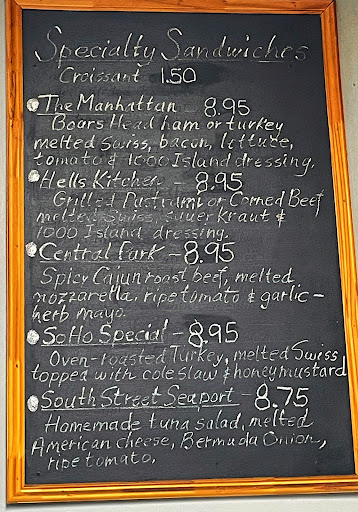 Specialty Sandwiches
Croissant 1.50
The Manhattan - 8.95
Boars Head ham or turkey
melted Swiss, bacon, lettuce,
tomato & 1000 Island dressing.
Hells Kitchen - 8.95
Grilled Pastrami or Corned Beef
melted Swiss, sauer kraut &
1000 Island dressing.
Central Park - 8.95
Spicy Cajun roast beef, melted
mozzarella, ripe tomato & garlic-
herb mayo.
SoHo Special - 8.95
Oven-roasted Turkey, melted Swiss
topped with cole slaw & honey mustard
South Street Seaport - 8.75
Homemade tuna salad, melted
American cheese, Bermuda Onion,
ripe tomato.